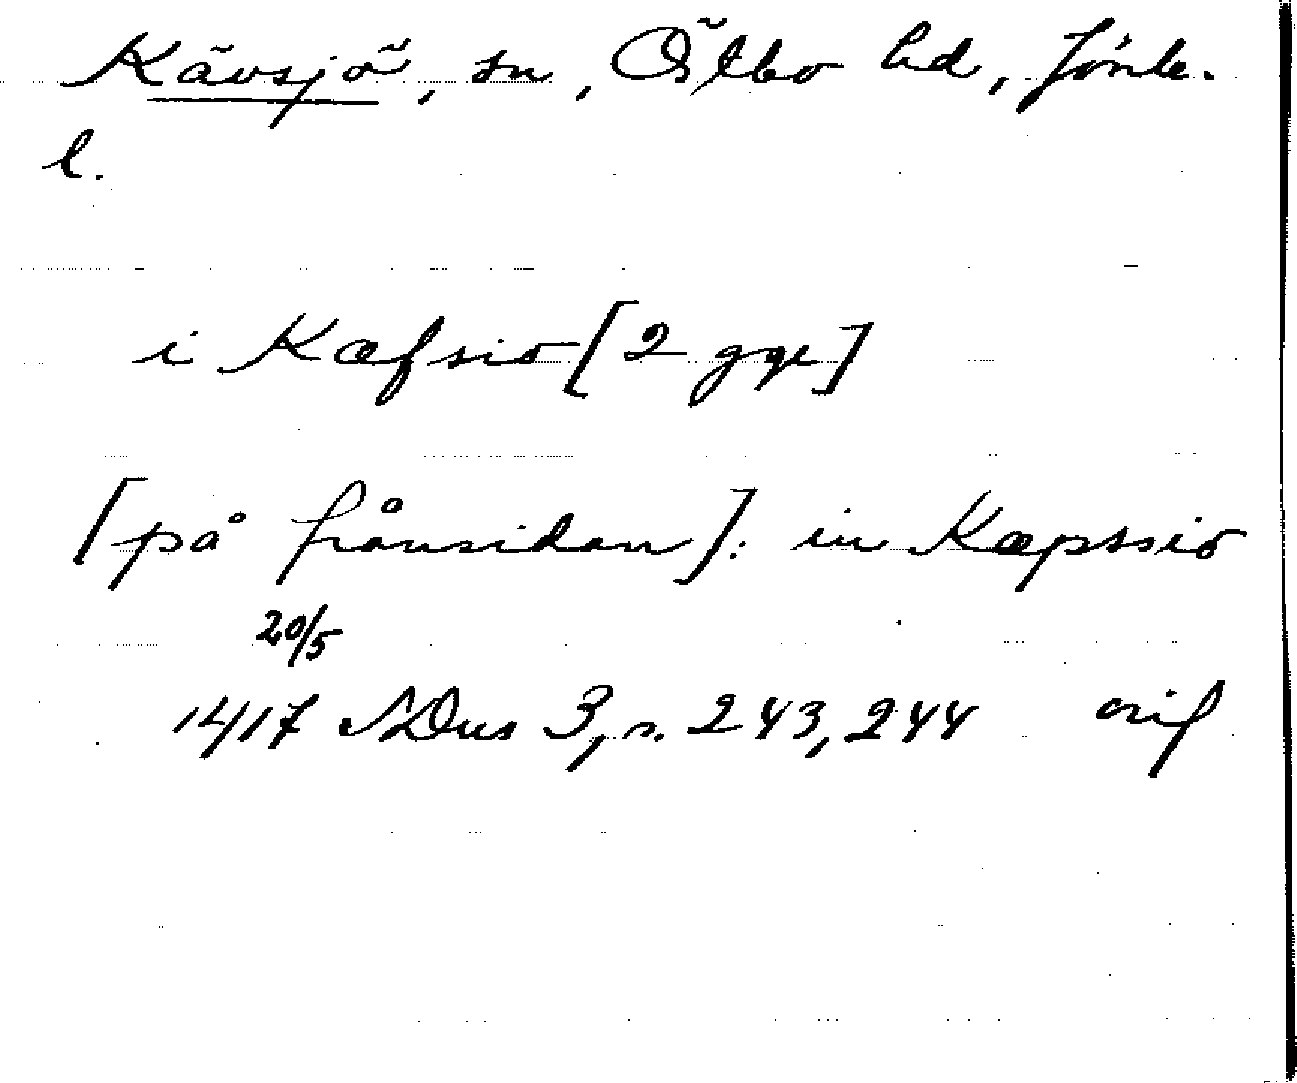 Kävsjö, sn, Östbo hd, Jönk.
l.
i Kæfsio [2 ggr]
[på frånsidan]: in Kæpssio
20/5
1417 SDns 3, s. 243, 244 orig